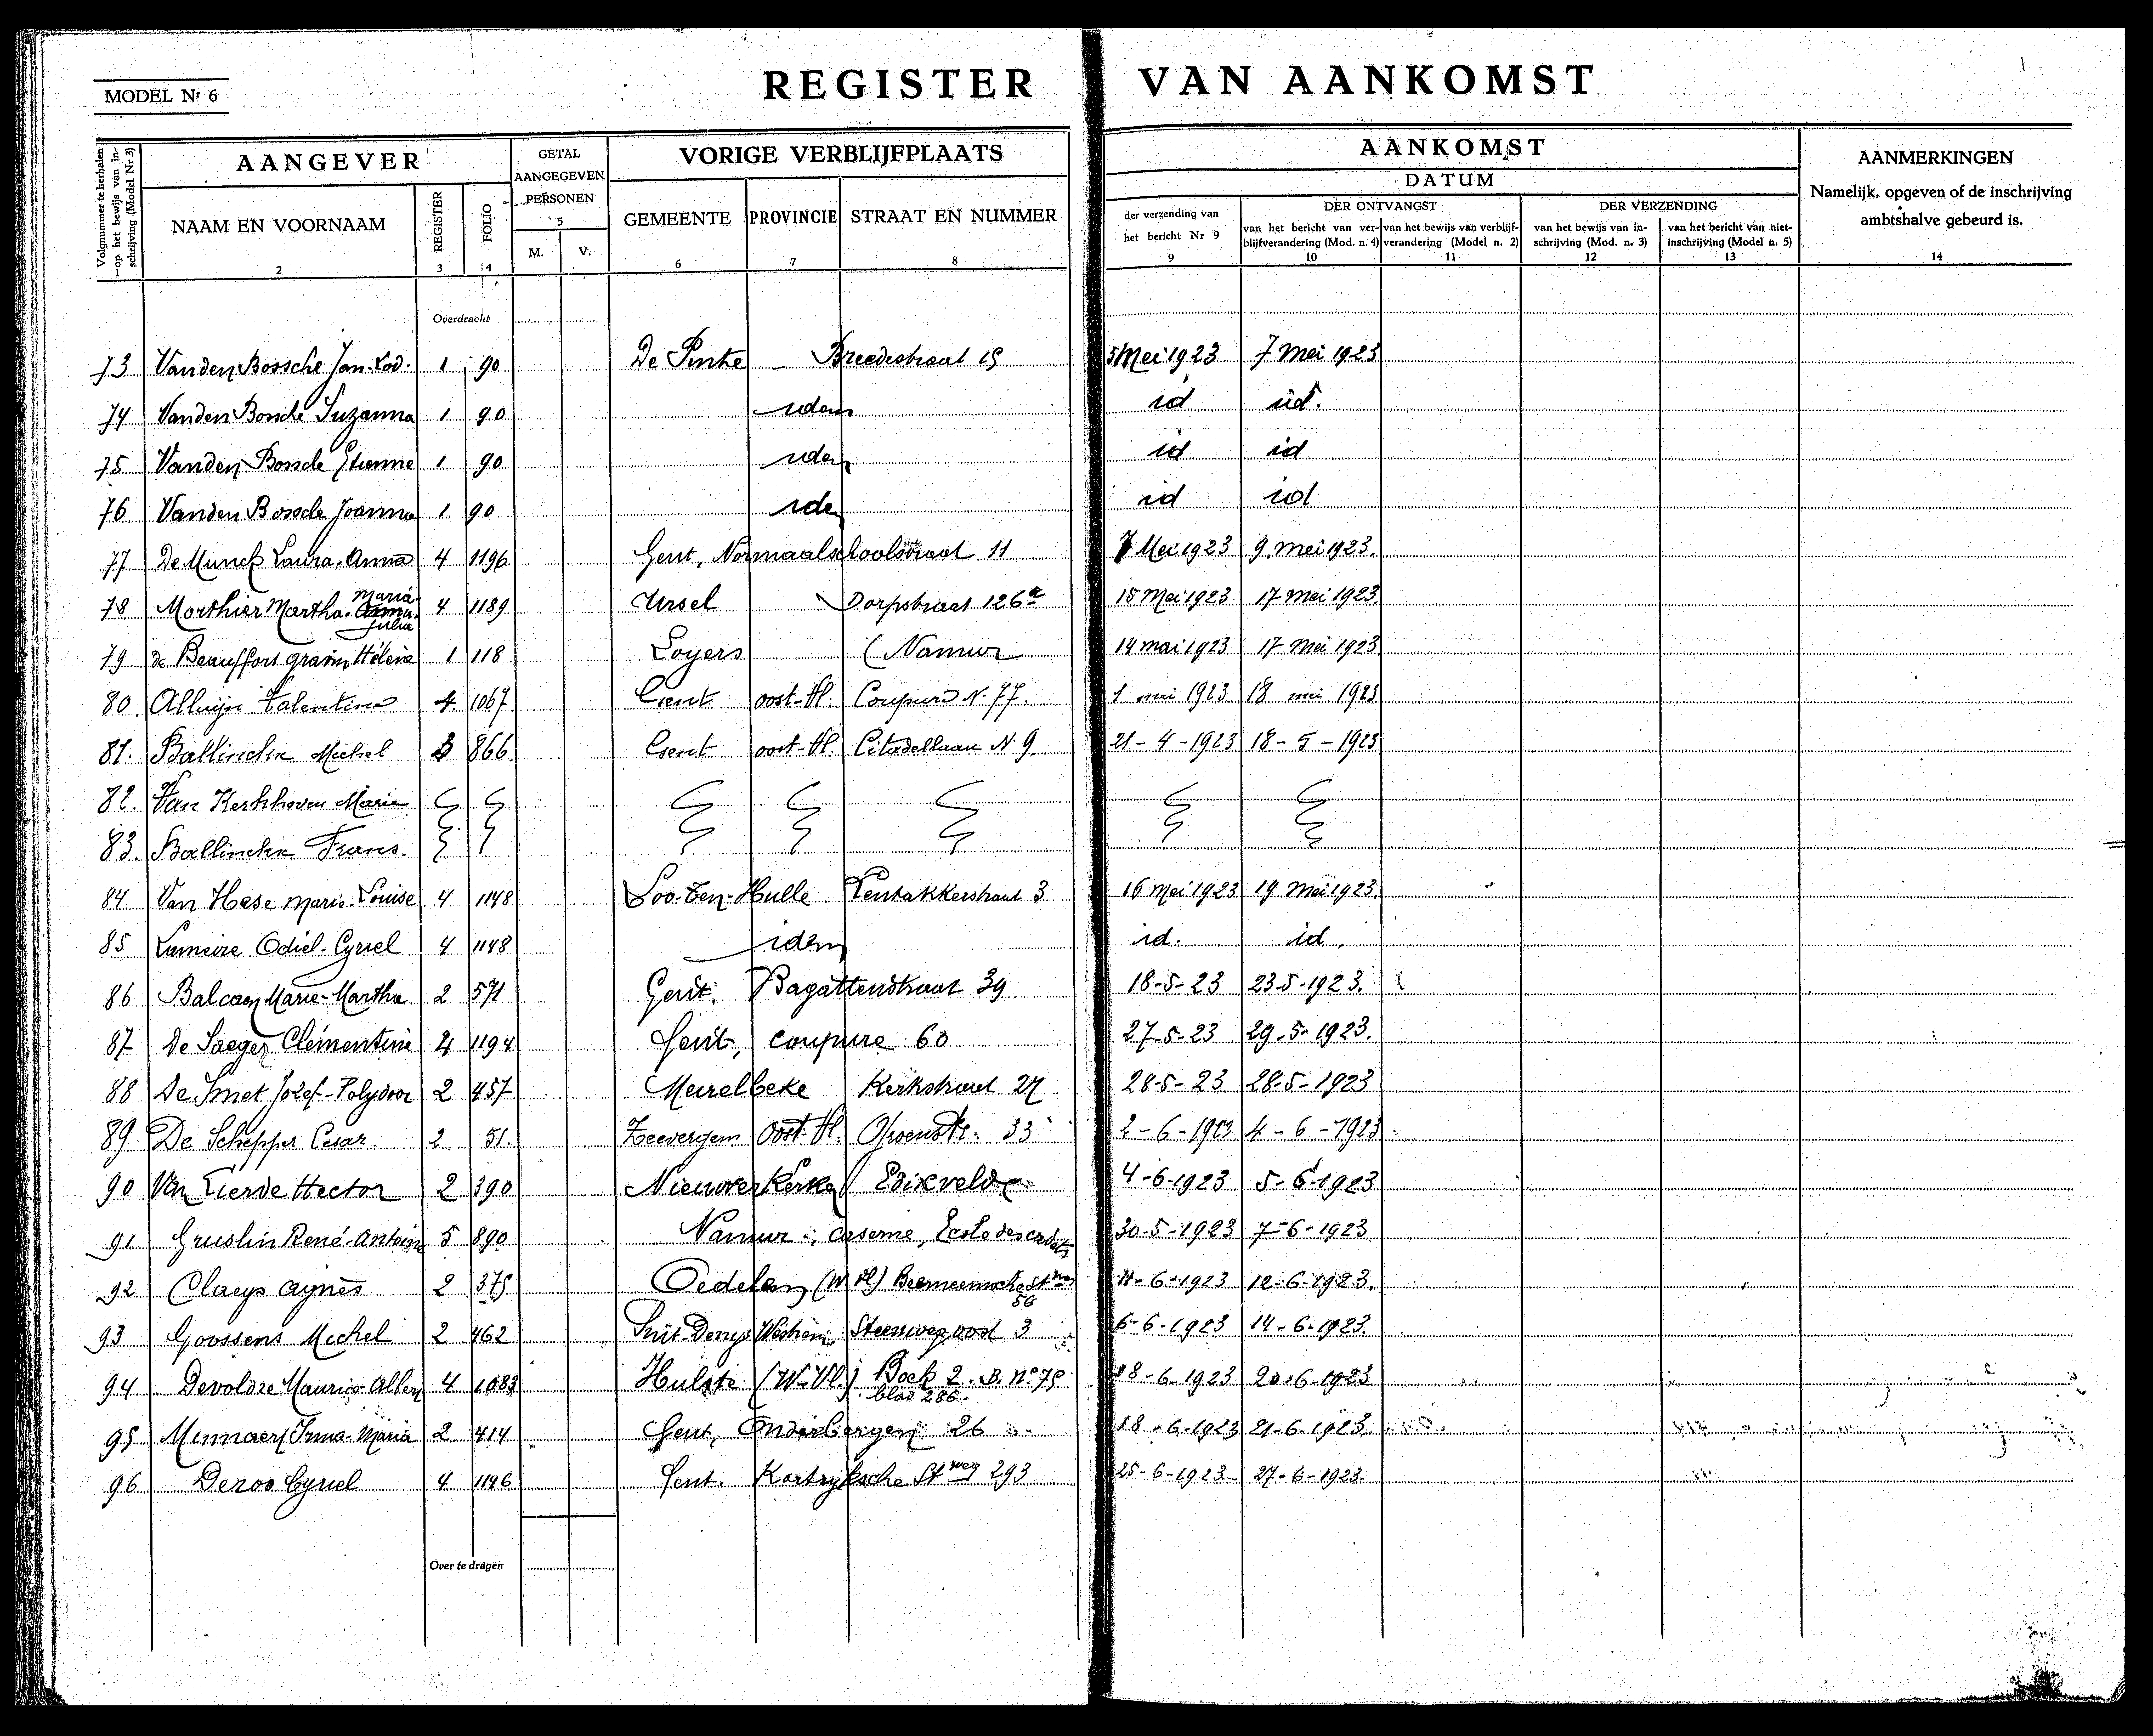 MODEL Nr 6
REGISTER VAN AANKOMST
Volgnummer te herhalen op het bewijs van inschrijving (Model Nr 3)
AANGEVER
NAAM EN VOORNAAM
2
REGISTER
3
FOLIO
4
GETAL
AANGEGEVEN
PERSONEN
5
M. V.
VORIGE VERBLIJFPLAATS
GEMEENTE PROVINCIE STRAAT EN NUMMER
6 7 8
AANKOMST
DATUM
der verzending van
het bericht Nr 9
9
DER ONTVANGST
van het bericht van ver-
blijfverandering (Mod. n. 4)
10
van het bewijs van verblijf-
verandering (Model n. 2)
11
DER VERZENDING
van het bewijs van in-
schrijving (Mod. n. 3)
12
van het bericht van niet-
inschrijving (Model n. 5)
13
AANMERKINGEN
Namelijk, opgeven of de inschrijving
ambtshalve gebeurd is.
14
Overdracht
73 Vanden Bossche Jan-Lod. 1 90 De Pinte Breedestraat 15 5 Mei 1923 7 Mei 1923
74 Vanden Bossche Suzanna 1 90 idem id id.
75 Vanden Bossche Etienne 1 90 idem id id
76 Vanden Bossche Joanna 1 90 ide id id
77 De Munck Laura-Anna 4 1196 Gent, Normaalschoolstraat 11 7 Mei 1923 9 mei 1923.
78 Morthier Martha-Maria Julia 4 1189 Ursel Dorpstraat 126a 15 Mei 1923 17 Mei 1923
79 de Beauffort gravin Hélène 1 118 Loyers (Namur 14 mai 1923 17 Mei 1923
80. Alluijn Valentina 4 1067 Gent oost-Vl. Coupure N. 77. 1 mei 1923 18 mei 1923
81. Ballinckx Michel 3 866 Gent oost-Vl. Citadellaan N. 9 21-4-1923 18-5-1923
82. Van Kerkhoven Marie
83. Ballinckx Frans.
84 Van Hese Marie-Louise 4 1148 Loo-Ten-Hulle Tentakkerstraat 3 16 Mei 1923 19 Mei 1923.
85 Lameire Odiel-Cyriel 4 1148 idem id. id.
86 Balcaen Marie-Martha 2 571 Gent. Bagattenstraat 39 18-5-23 23-5-1923.
87 De Saeger Clémentine 4 1194 Gent, coupure 60 27-5-23 29-5-1923.
88 De Smet Jozef-Polydoor 2 457 Meirelbeke Kerkstraat 27 28-5-23 28-5-1923
89 De Schepper Cesar. 2 51. Zeevergem Oost-Vl. 33 2-6-1923 4-6-1923
90 Van Lierde Hector 2 390 Nieuwerkerke Edixvelde 4-6-1923 5-6-1923
91 Gruslin René-Antoine 5 890 Namur, caserne, Ecole des cadets 30-5-1923 7-6-1923
92 Claeys Agnès 2 375 Oedelem (W Vl) 56 11-6-1923 12-6-1923.
93 Goossens Michel 2 462 Sint-Denys Westrem, Steenweg oost 3 6-6-1923 14-6-1923.
94 Devoldre Maurice-Albert 4 1083 Hulste (W-Vl.) Boek 2. B. No 75 blad 286. 18-6-1923 20-6-1923
95 Minnaert Irma-Maria 2 414 Gent, Onderbergen 26 18-6-1923 21-6-1923.
96 Deroo Cyriel 4 1146 Gent. Kortrijksche Stweg 293 25-6-1923 27-6-1923.
Over te dragen